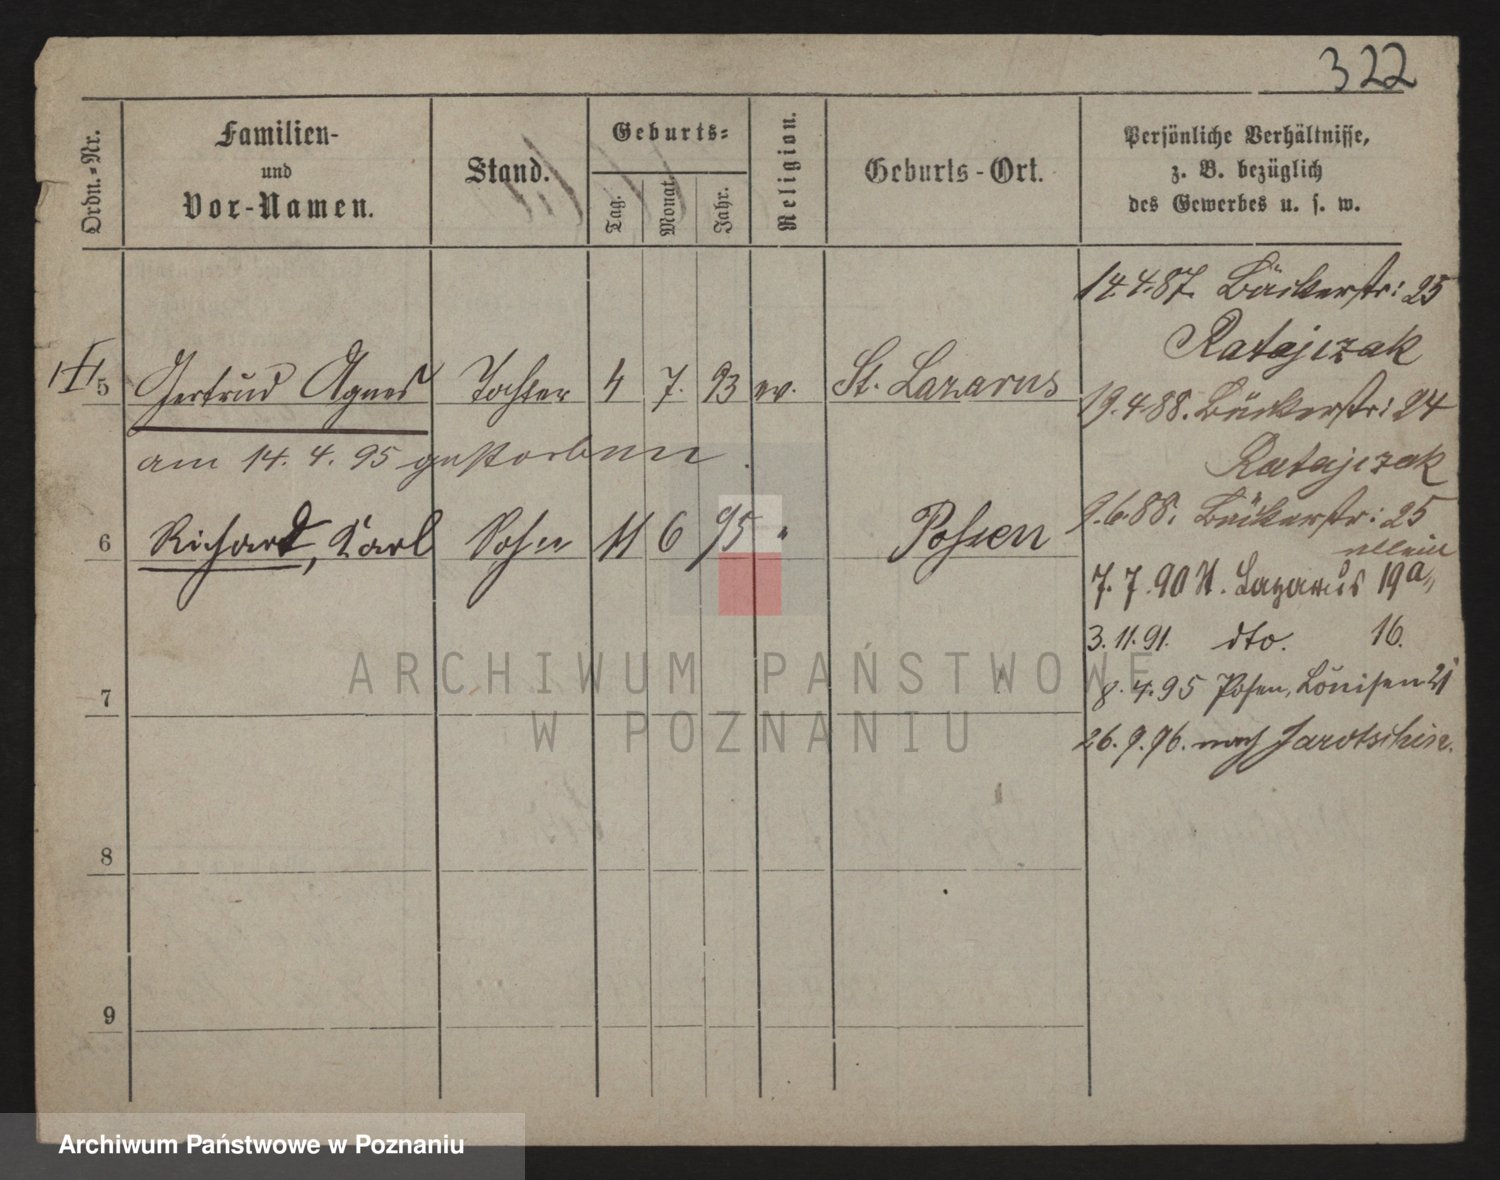 322
Ordn.-Nr.
Familien-
und
Vor-Namen.
Stand.
Geburts-
Tag.
Monat.
Jahr.
Religion.
Geburts-Ort.
Persönliche Verhältnisse,
z. B. bezüglich
des Gewerbes u. s. w.
14.4.87. Bäckerstr: 25
Ratajczak
5 Gertrud Agnes Tochter 4 7. 93 ev. St. Lazarus
19.4.88. Bäckerstr: 24
am 14. 4. 95 gestorben.
Ratajczak
6 Richard, Karl Sohn 11 6 95 " Posen
9.6.88. Bäckerstr: 25
allein
7. 7. 90 St. Lazarus 19a,
3. 11. 91. dto. 16.
8. 4. 95 Posen, Louisen 21
26. 9. 96. nach Jarotschin.
7
8
9
ARCHIWUM PAŃSTWOWE
W POZNANIU
Archiwum Państwowe w Poznaniu